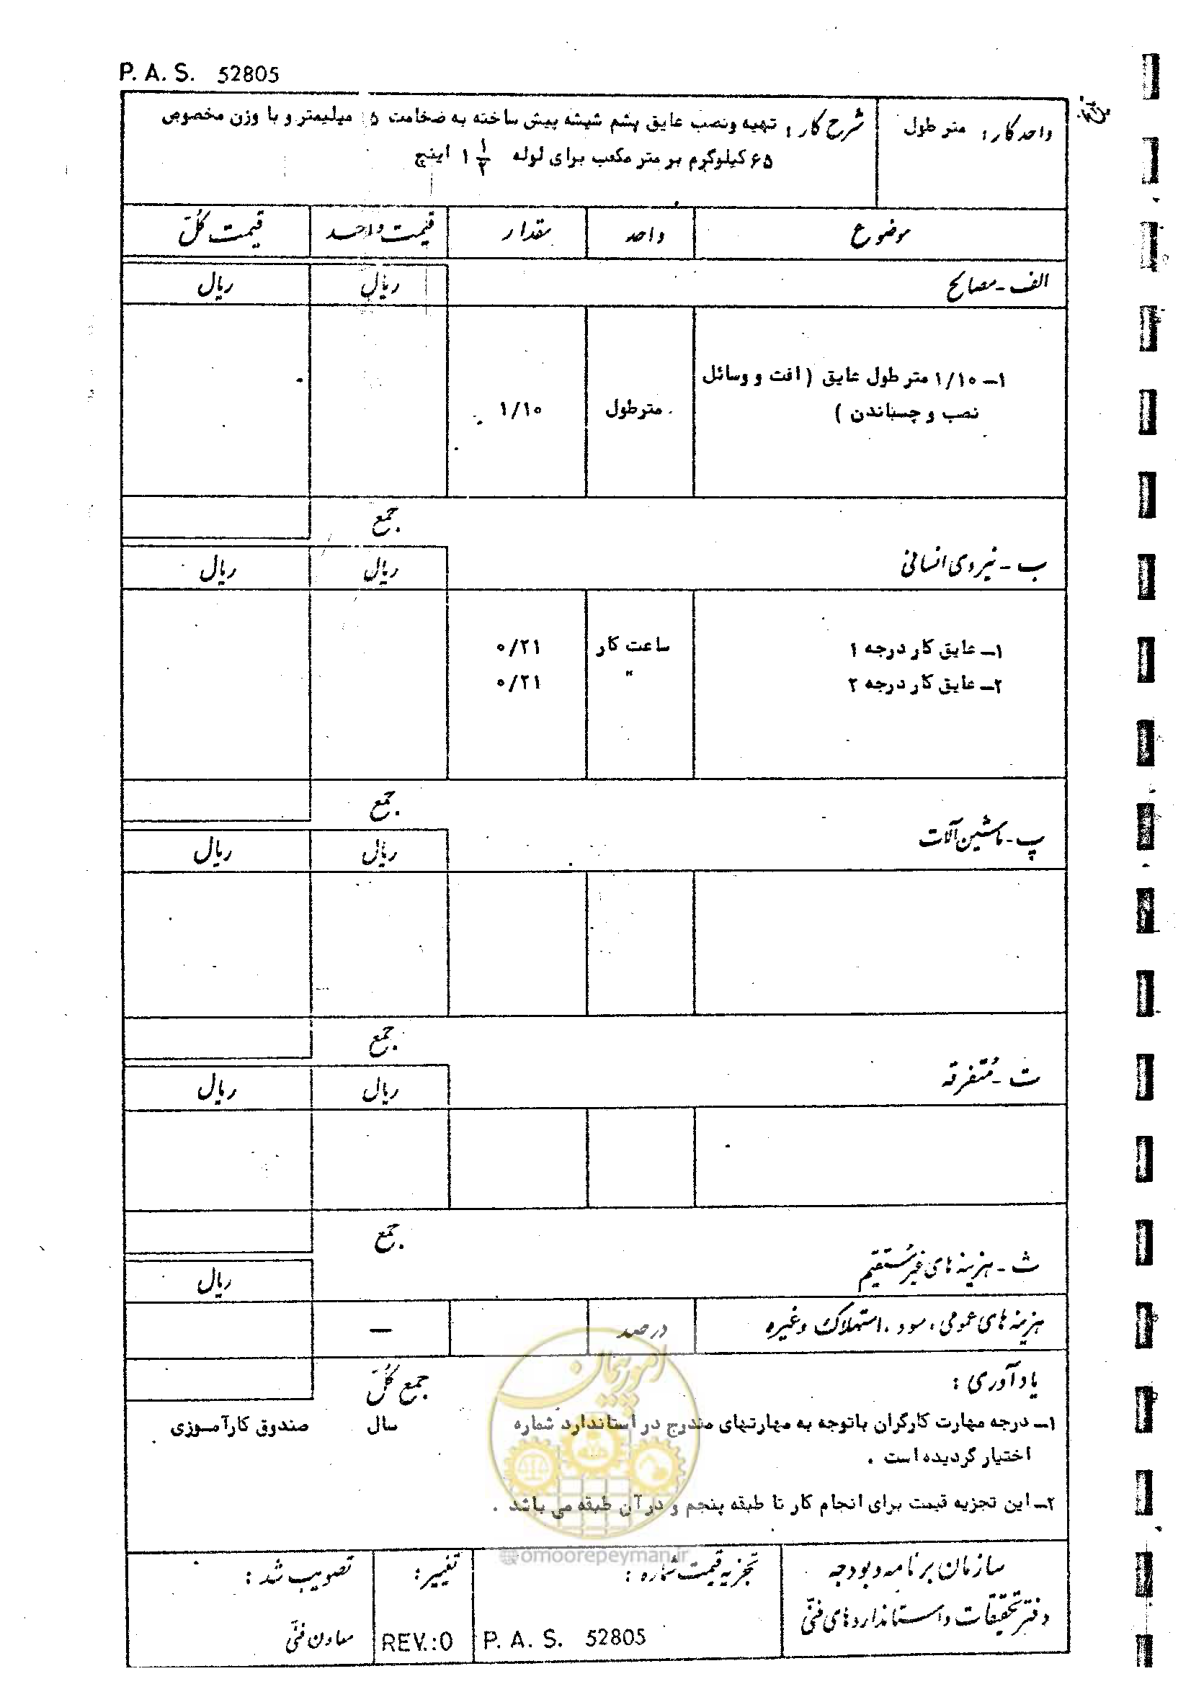 P. A. S. 52805
واحد کار : متر طول
شرح کار : تهیه ونصب عایق پشم شیشه پیش ساخته به ضخامت میلیمتر و با وزن مخصوص
۶۵ کیلوگرم بر متر مکعب برای لوله ۱ ۱/۲ اینچ
موضوع واحد مقدار قیمت واحد قیمت کُلّ
الف - مصالح ریال ریال
۱ــ ۱/۱۰ متر طول عایق ( افت و وسائل
نصب و چسباندن ) مترطول ۱/۱۰
جمع
ب - نیروی انسانی ریال ریال
۱ــ عایق کار درجه ۱ ساعت کار ۰/۲۱
۲ــ عایق کار درجه ۲ " ۰/۲۱
جمع
پ - ماشین آلات ریال ریال
جمع
ت - مُتفرقه ریال ریال
جمع
ث - هزینه های غیرمُستقیم ریال
هزینه های عمومی ، سود ، استهلاک وغیره درصد —
یادآوری : جمع کُلّ
۱ــ درجه مهارت کارگران باتوجه به مهارتهای مندرج در استاندارد شماره سال صندوق کارآموزی
اختیار گردیده است .
۲ــ این تجزیه قیمت برای انجام کار تا طبقه پنجم و در آن طبقه می باشد .
امور پیمان
omoorepeyman.ir
سازمان برنامه و بودجه
دفتر تحقیقات و استانداردهای فنّی
تجزیه قیمت شماره :
P. A. S. 52805
تغییر :
REV.:0
تصویب شد :
معاون فنّی